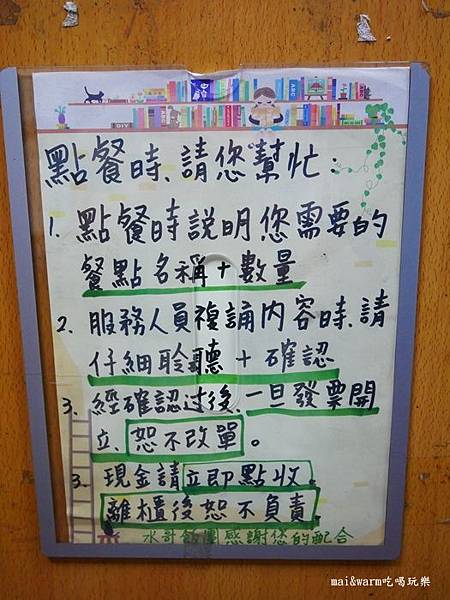 點餐時、請您幫忙：
1. 點餐時說明您需要的
餐點名稱+數量
2. 服務人員複誦內容時、請
仔細聆聽+確認
3. 經確認过後、一旦發票開
立、恕不改單。
3. 現金請立即點收。
離櫃後恕不負責。
水哥飯團感謝您的配合
mai&warm吃喝玩樂